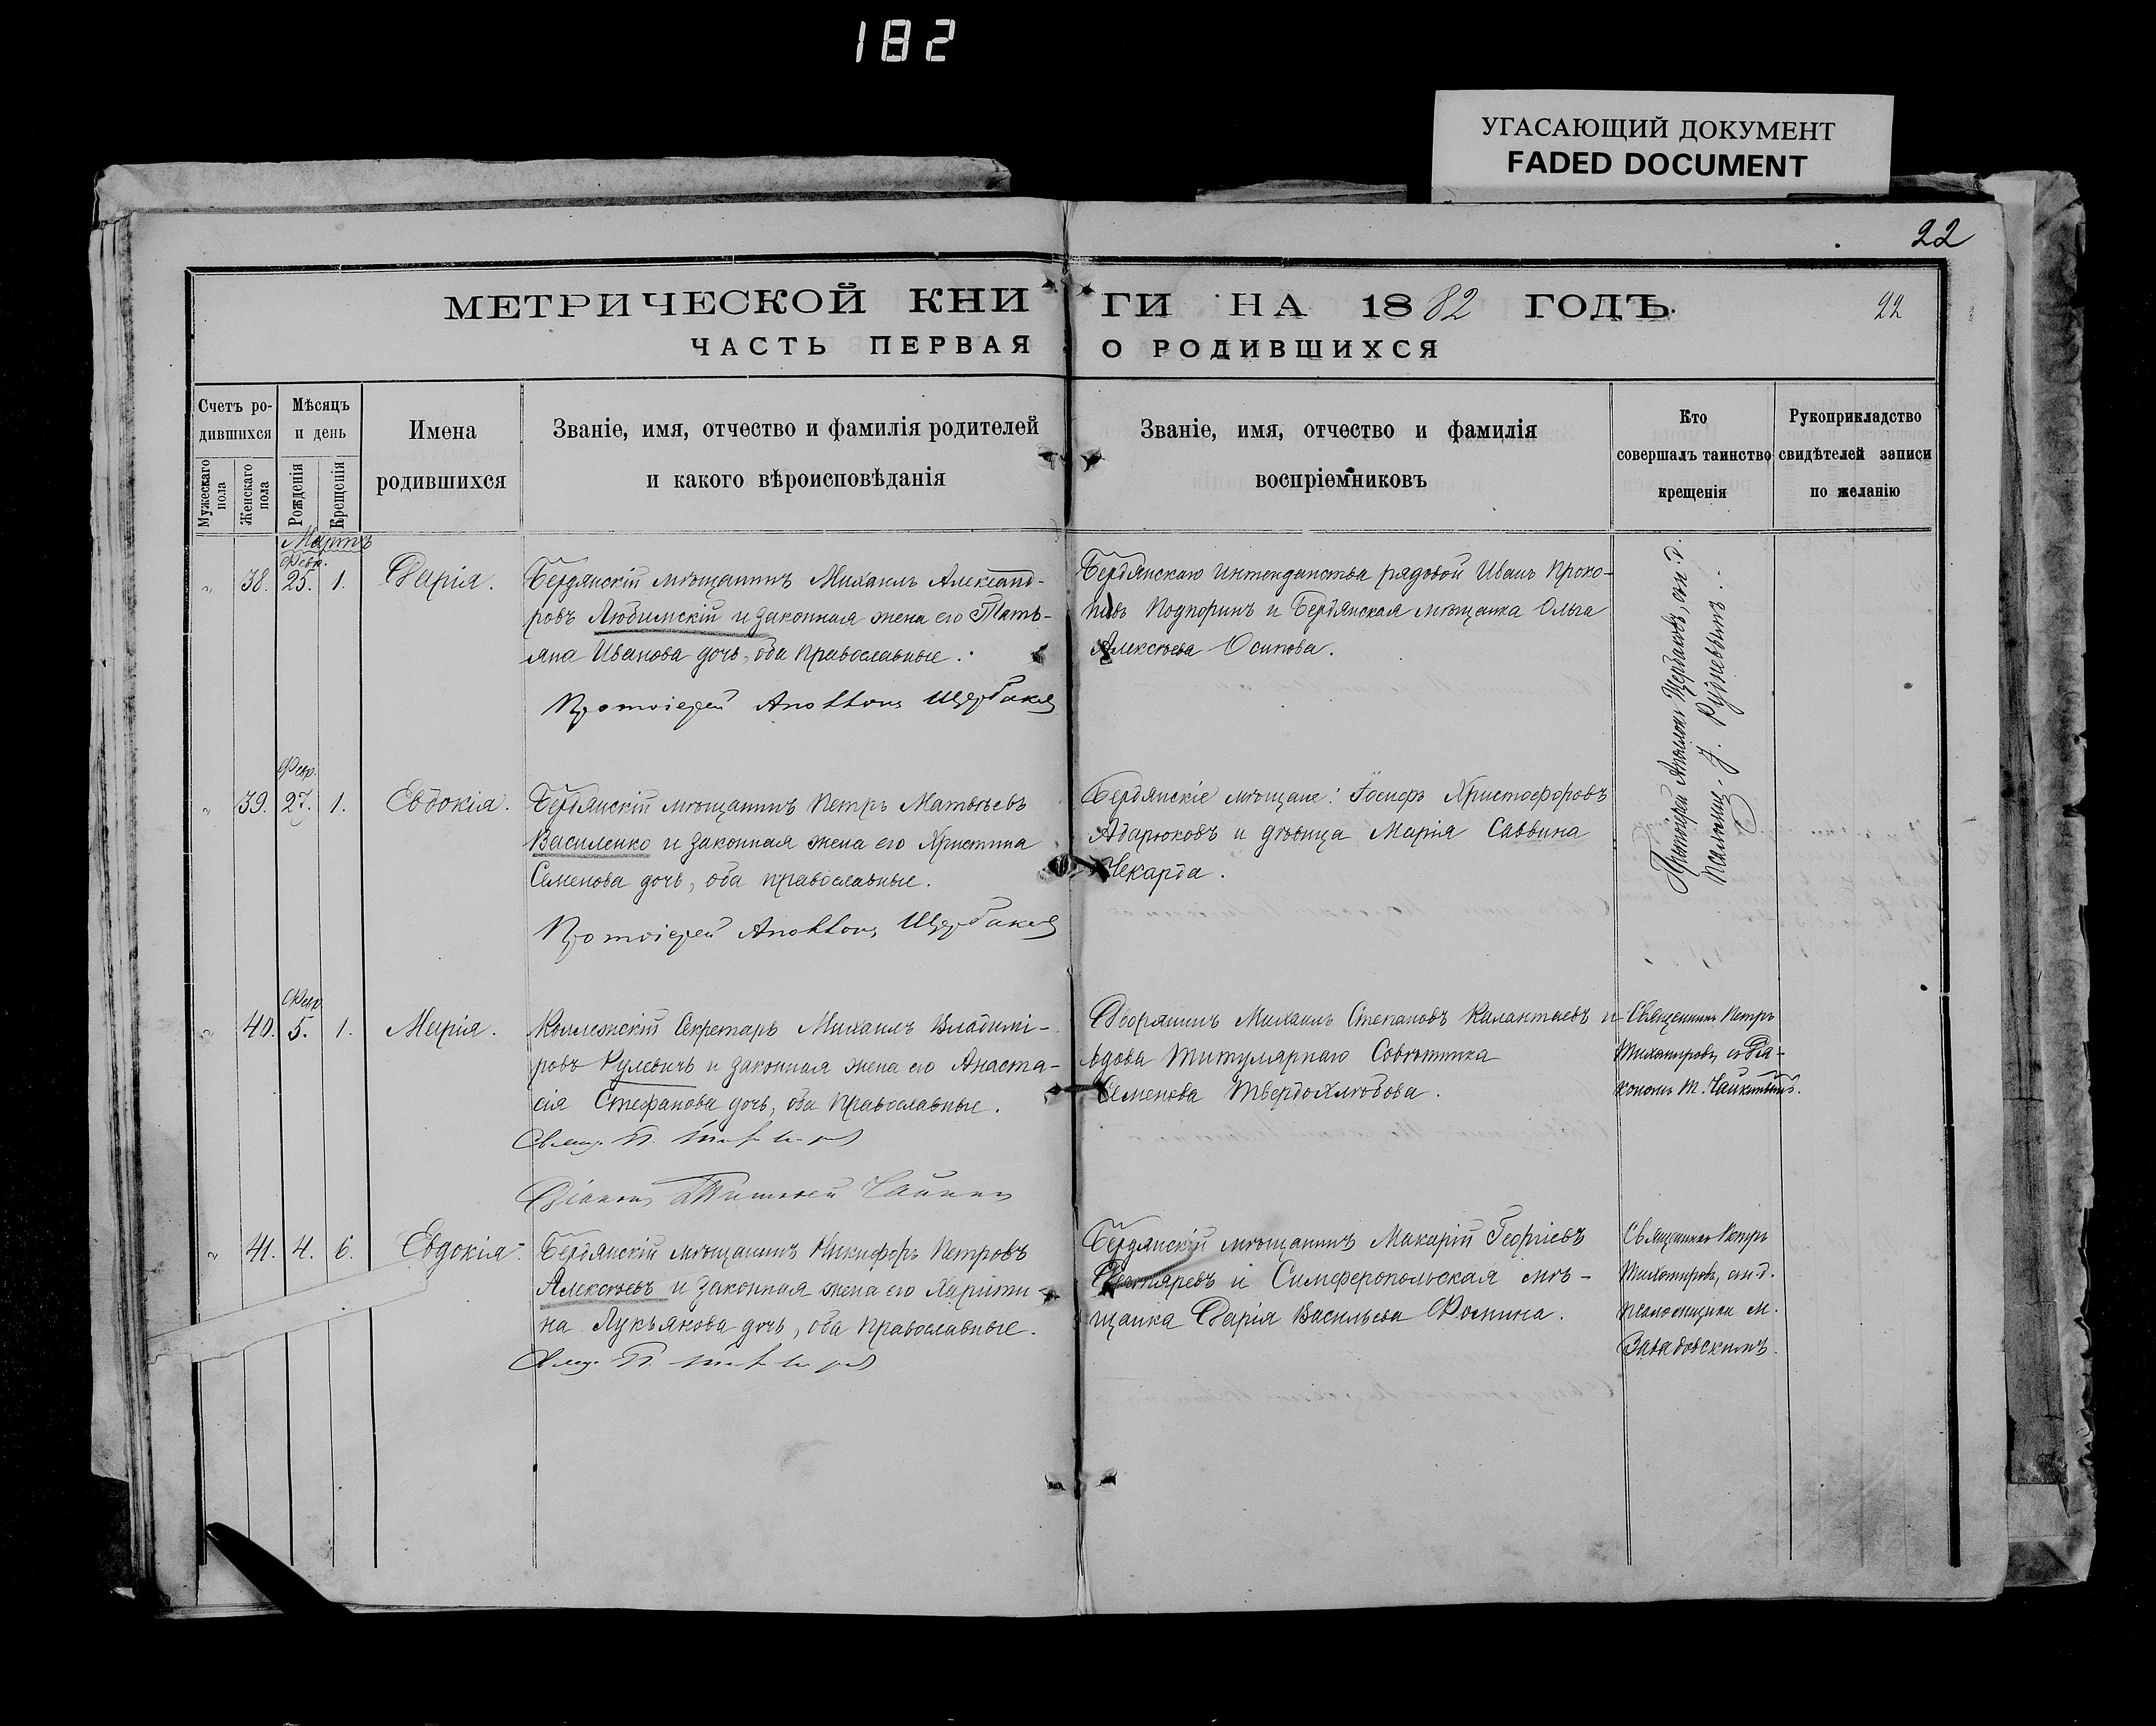 182
УГАСАЮЩИЙ ДОКУМЕНТ
FADED DOCUMENT
22
МЕТРИЧЕСКОЙ КНИГИ НА 1882 ГОДЪ.
22
ЧАСТЬ ПЕРВАЯ О РОДИВШИХСЯ
Счетъ ро-
дившихся
Мужескаго пола
Женскаго пола
Мѣсяцъ
и день
Рожденія
Крещенія
Имена
родившихся
Званіе, имя, отчество и фамилія родителей
и какого вѣроисповѣданія
Званіе, имя, отчество и фамилія
воспріемниковъ
Кто
совершалъ таинство
крещенія
Рукоприкладство
свидѣтелей записи
по желанію
Мартъ
Февр.
" 38. 25. 1. Дарія.
Бердянскій мѣщанинъ Михаилъ Александ-
ровъ Любимскій и законная жена его Тать-
яна Иванова дочь, оба православные.
Протоіерей Аполлонъ Щербаковъ
Бердянскаго Интендантства рядовой Иванъ Проко-
пьевъ Подпоринъ и Бердянская мѣщанка Ольга
Алексѣева Осипова.
Протоіерей Аполлонъ Щербаковъ, съ и. д.
псаломщ. Рудневымъ.
Февр.
" 39. 27. 1. Евдокія.
Бердянскій мѣщанинъ Петръ Матвѣевъ
Василенко и законная жена его Христина
Семенова дочь, оба православные.
Протоіерей Аполлонъ Щербаковъ
Бердянскіе мѣщане: Іосифъ Христофоровъ
Абарюковъ и дѣвица Марія Саввина
Чекарда.
Февр.
" 40. 5. 1. Марія.
Коллежскій Секретарь Михаилъ Владимі-
ровъ Рулевичъ и законная жена его Анаста-
сія Стефанова дочь, оба православные.
Свящ. П. Тихомировъ
Діаконъ Тимофей Чайкинъ
Дворянинъ Михаилъ Степановъ Калантаевъ и
вдова Титулярнаго Совѣтника
Семенова Твердохлѣбова.
Священникъ Петръ
Тихомировъ, съ Діа-
кономъ Т. Чайкинымъ.
" 41. 4. 6. Евдокія
Бердянскій мѣщанинъ Никифоръ Петровъ
Алексѣевъ и законная жена его Харити-
на Лукьянова дочь, оба православные.
Свящ. П. Тихомировъ
Бердянскій мѣщанинъ Макарій Георгіевъ
и Симферопольская мѣ-
щанка Дарія Васильева Фомина.
Священникъ Петръ
Тихомировъ, съ и. д.
псаломщика М.
Завадовскимъ.